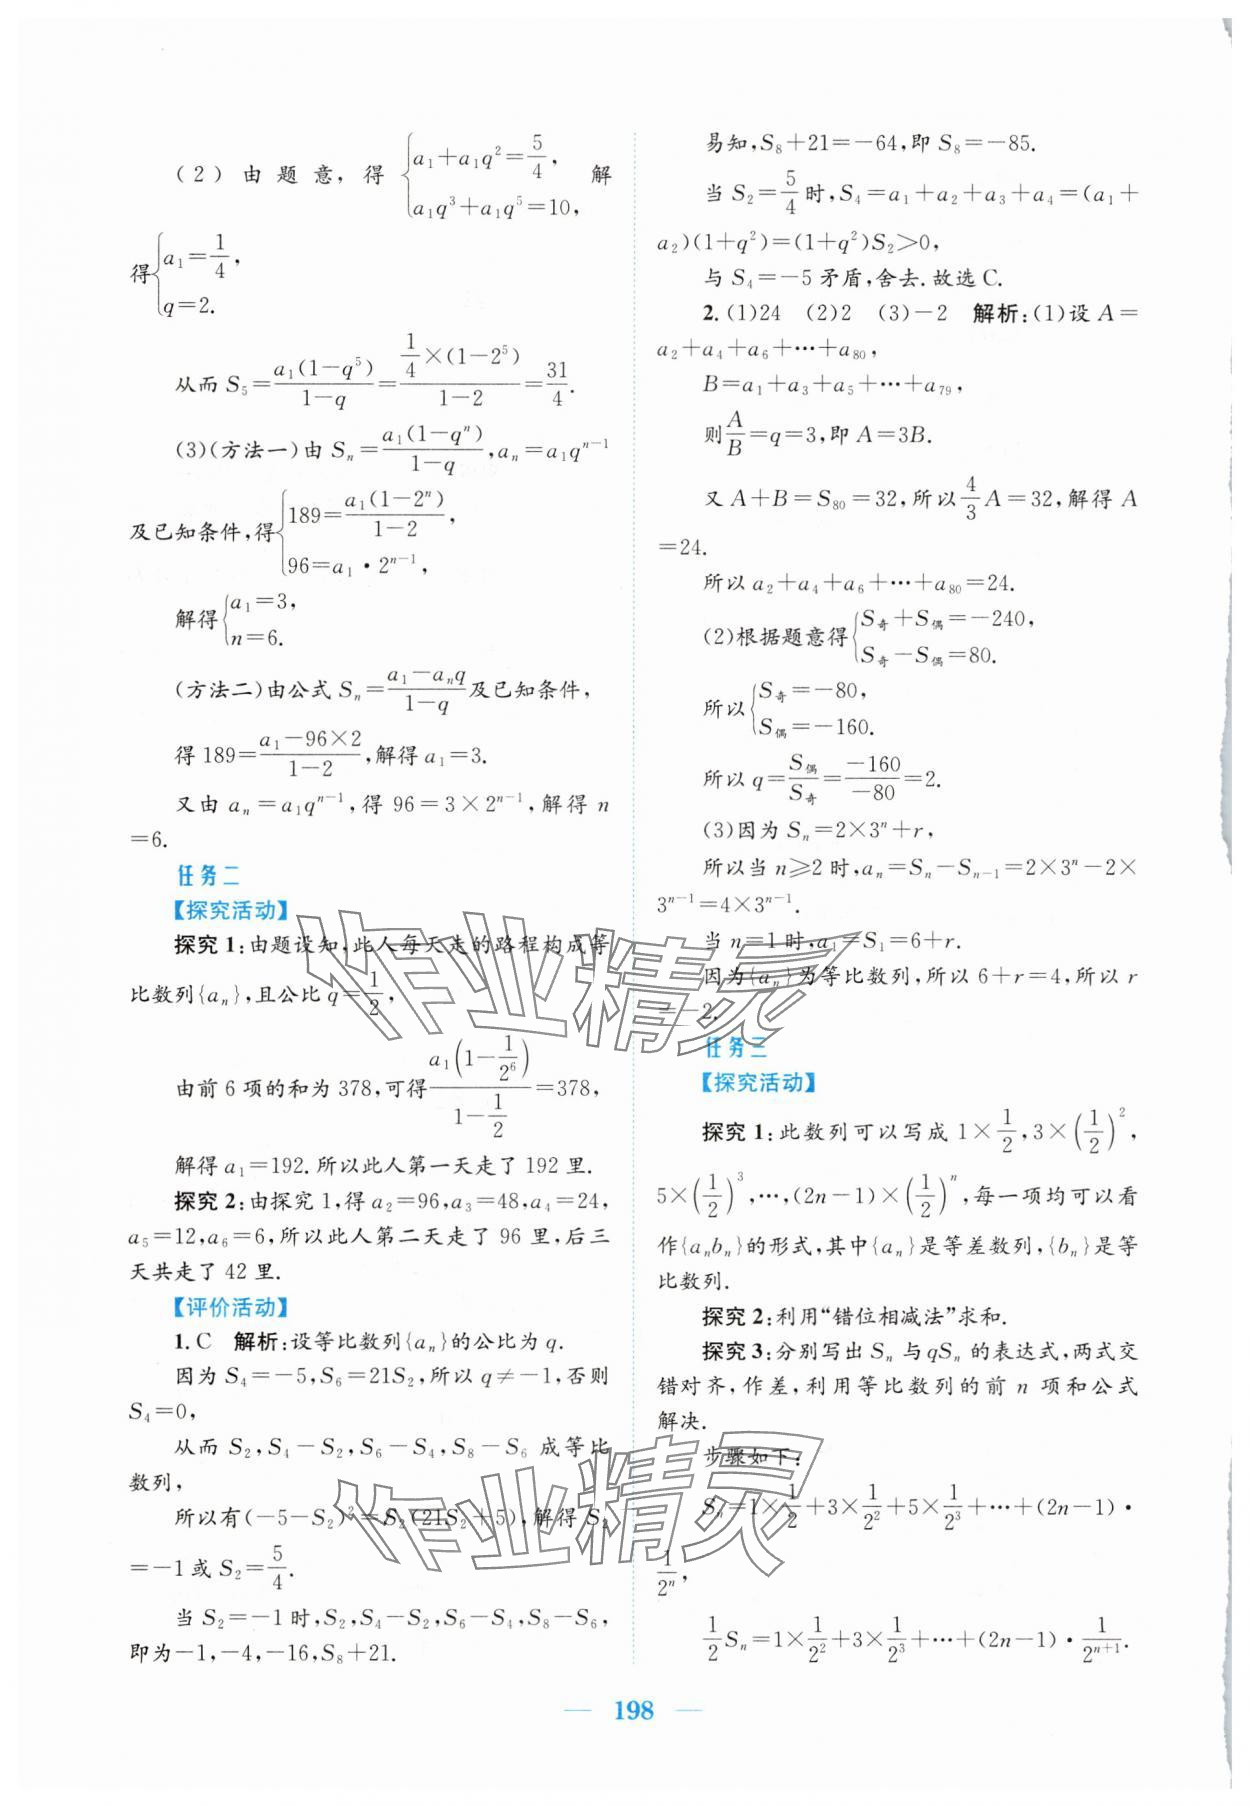 (2)由题意,得{a₁+a₁q²=5/4, a₁q³+a₁q⁵=10, 解
得{a₁=1/4, q=2.
从而 S₅=a₁(1-q⁵)/(1-q)=1/4×(1-2⁵)/(1-2)=31/4.
(3)(方法一)由 Sₙ=a₁(1-qⁿ)/(1-q),aₙ=a₁qⁿ⁻¹
及已知条件,得{189=a₁(1-2ⁿ)/(1-2), 96=a₁·2ⁿ⁻¹,
解得{a₁=3, n=6.
(方法二)由公式 Sₙ=(a₁-aₙq)/(1-q)及已知条件,
得 189=(a₁-96×2)/(1-2),解得 a₁=3.
又由 aₙ=a₁qⁿ⁻¹,得 96=3×2ⁿ⁻¹,解得 n
=6.
任务二
【探究活动】
探究 1:由题设知,此人每天走的路程构成等
比数列{aₙ},且公比 q=1/2,
由前 6 项的和为 378,可得a₁(1-1/2⁶)/(1-1/2)=378,
解得 a₁=192.所以此人第一天走了 192 里.
探究 2:由探究 1,得 a₂=96,a₃=48,a₄=24,
a₅=12,a₆=6,所以此人第二天走了 96 里,后三
天共走了 42 里.
【评价活动】
1.C 解析:设等比数列{aₙ}的公比为 q.
因为 S₄=-5,S₆=21S₂,所以 q≠-1,否则
S₄=0,
从而 S₂,S₄-S₂,S₆-S₄,S₈-S₆ 成等比
数列,
所以有(-5-S₂)²=S₂(21S₂+5),解得 S₂
=-1或 S₂=5/4.
当 S₂=-1时,S₂,S₄-S₂,S₆-S₄,S₈-S₆,
即为-1,-4,-16,S₈+21.
易知,S₈+21=-64,即 S₈=-85.
当 S₂=5/4时,S₄=a₁+a₂+a₃+a₄=(a₁+
a₂)(1+q²)=(1+q²)S₂>0,
与 S₄=-5矛盾,舍去.故选 C.
2.(1)24 (2)2 (3)-2 解析:(1)设 A=
a₂+a₄+a₆+⋯+a₈₀,
B=a₁+a₃+a₅+⋯+a₇₉,
则A/B=q=3,即 A=3B.
又 A+B=S₈₀=32,所以4/3A=32,解得 A
=24.
所以 a₂+a₄+a₆+⋯+a₈₀=24.
(2)根据题意得{S奇+S偶=-240, S奇-S偶=80.
所以{S奇=-80, S偶=-160.
所以 q=S偶/S奇=-160/-80=2.
(3)因为 Sₙ=2×3ⁿ+r,
所以当 n⩾2时,aₙ=Sₙ-Sₙ₋₁=2×3ⁿ-2×
3ⁿ⁻¹=4×3ⁿ⁻¹.
当 n=1时,a₁=S₁=6+r.
因为{aₙ}为等比数列,所以 6+r=4,所以 r
=-2.
任务三
【探究活动】
探究 1:此数列可以写成 1×1/2,3×(1/2)²,
5×(1/2)³,⋯,(2n-1)×(1/2)ⁿ,每一项均可以看
作{aₙbₙ}的形式,其中{aₙ}是等差数列,{bₙ}是等
比数列.
探究 2:利用“错位相减法”求和.
探究 3:分别写出 Sₙ 与 qSₙ 的表达式,两式交
错对齐,作差,利用等比数列的前 n 项和公式
解决.
步骤如下:
Sₙ=1×1/2+3×1/2²+5×1/2³+⋯+(2n-1)·
1/2ⁿ,
1/2Sₙ=1×1/2²+3×1/2³+⋯+(2n-1)·1/2ⁿ⁺¹.
作业精灵
作业精灵
198